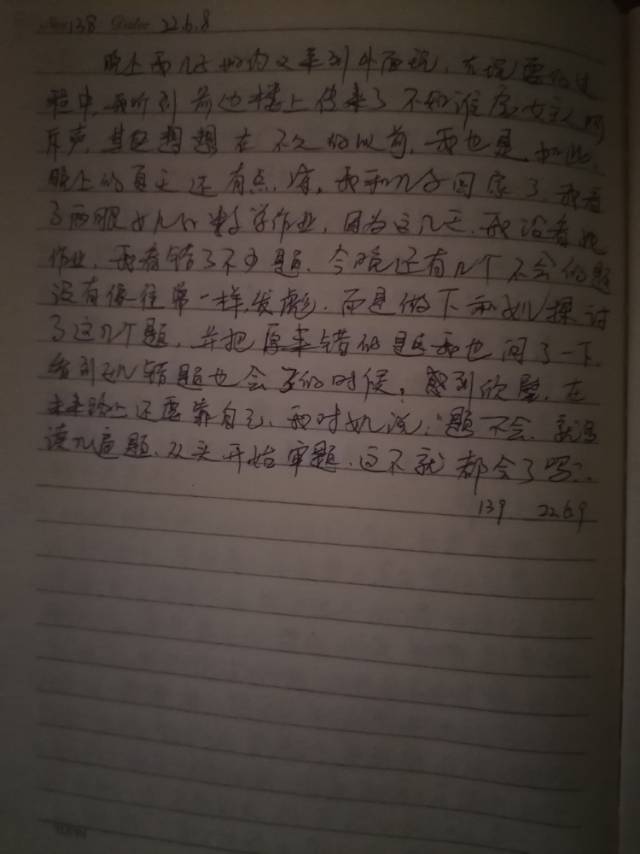 138 Date 22.6.8
晚上 和儿 如约又来到外面玩，在玩耍的过
程中，我听到前边楼上传来了不知谁 女主人
声，其 想想在不久的以前，我也是如此，
晚上的夏天还有点凉，我和儿子回家了，我看
了两眼 儿的数学作业，因为这几天，我没看他
作业，我看错了不少题，今晚还有几个不会的题
没有像往常一样发彪，而是 下和 儿探讨
了这几个题，并把原来错的题我也问了一下
看到 儿错题也会了的时候，感到欣慰，在
未来路上还要靠自己，我对 儿说，题不会，就多
读几遍题，从头开始审题，这不就都会了吗？
139 22.6.9